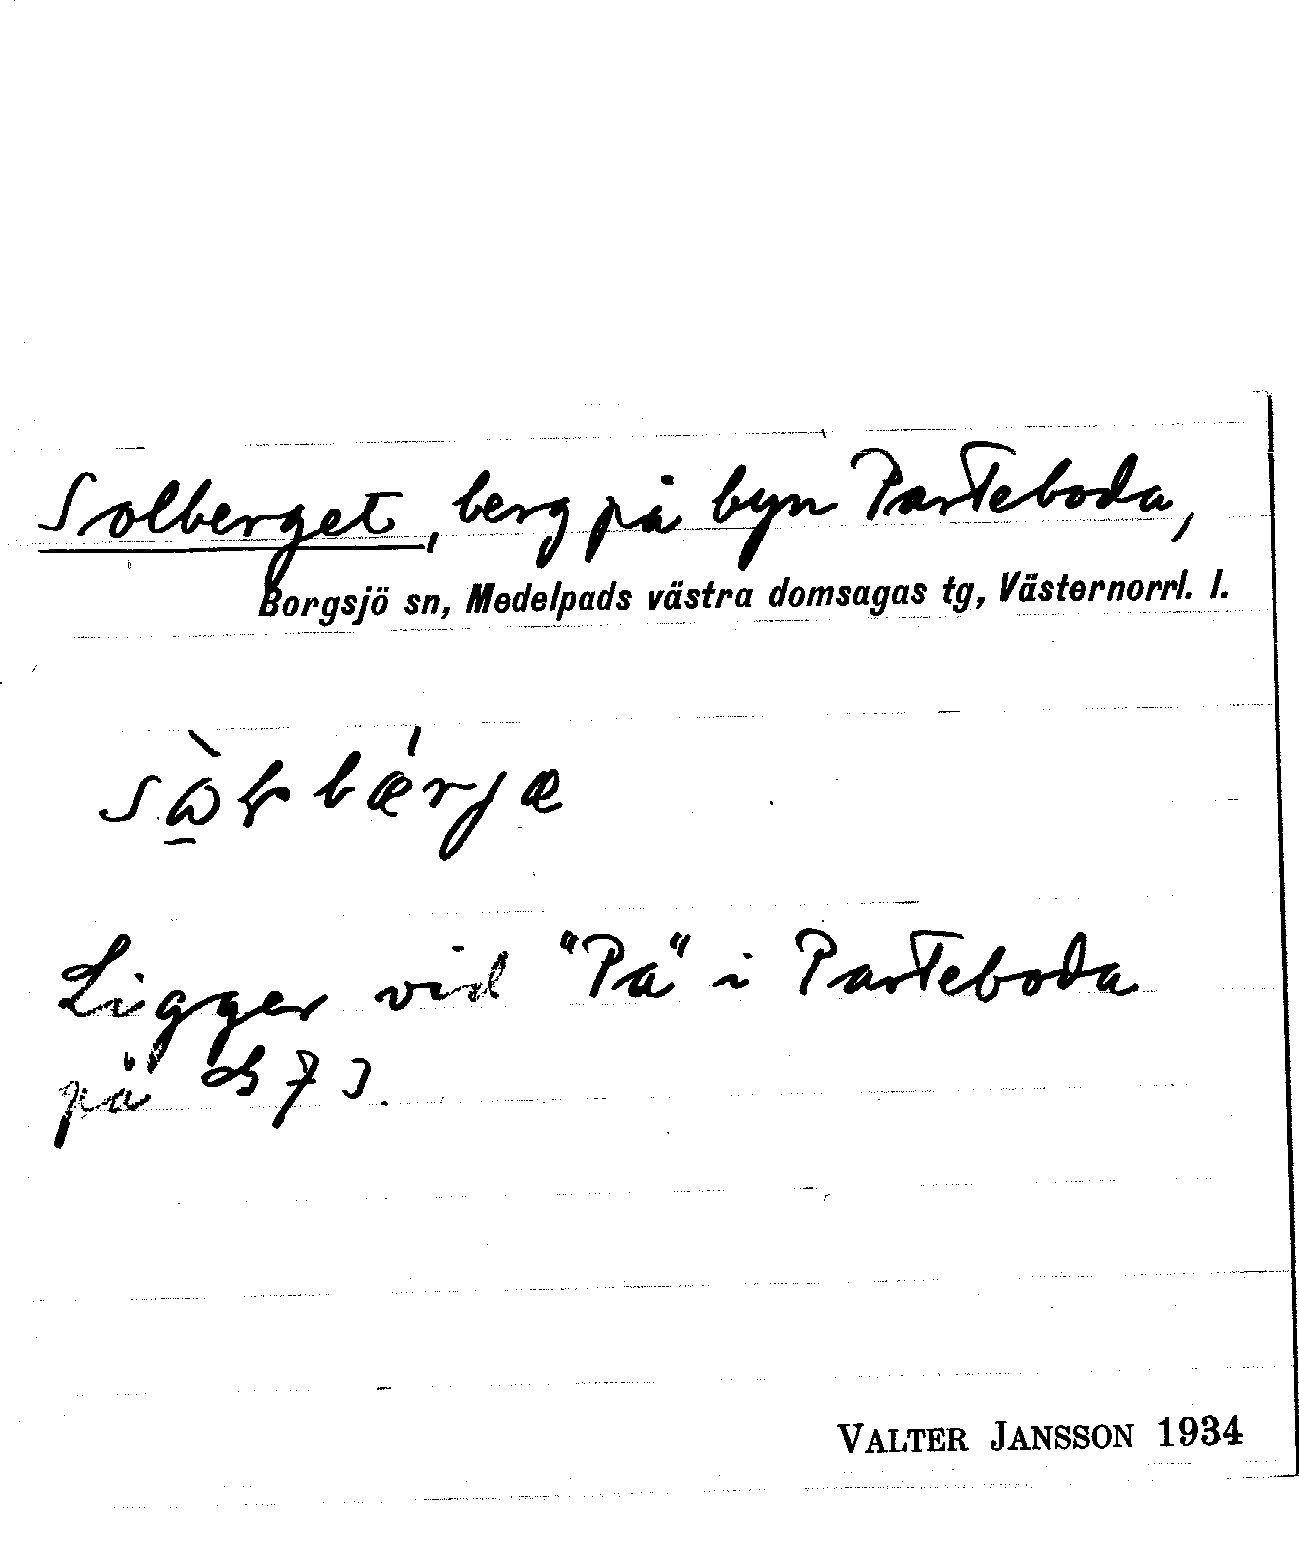 Solberget, berg på byn Parteboda,
Borgsjö sn, Medelpads västra domsagas tg, Västernorrl. l.
Ligger vid "Pa" i Parteboda
på
VALTER JANSSON 1934